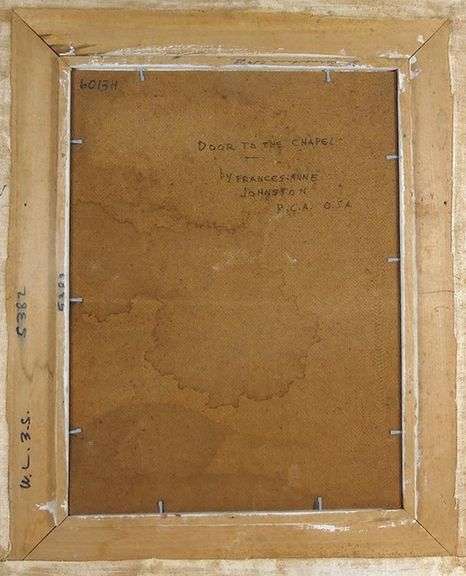 6013H
DOOR TO THE CHAPEL
by FRANCES-ANNE
JOHNSTON
R.C.A. O.S.A
5382
5382
W.L. 3-S.